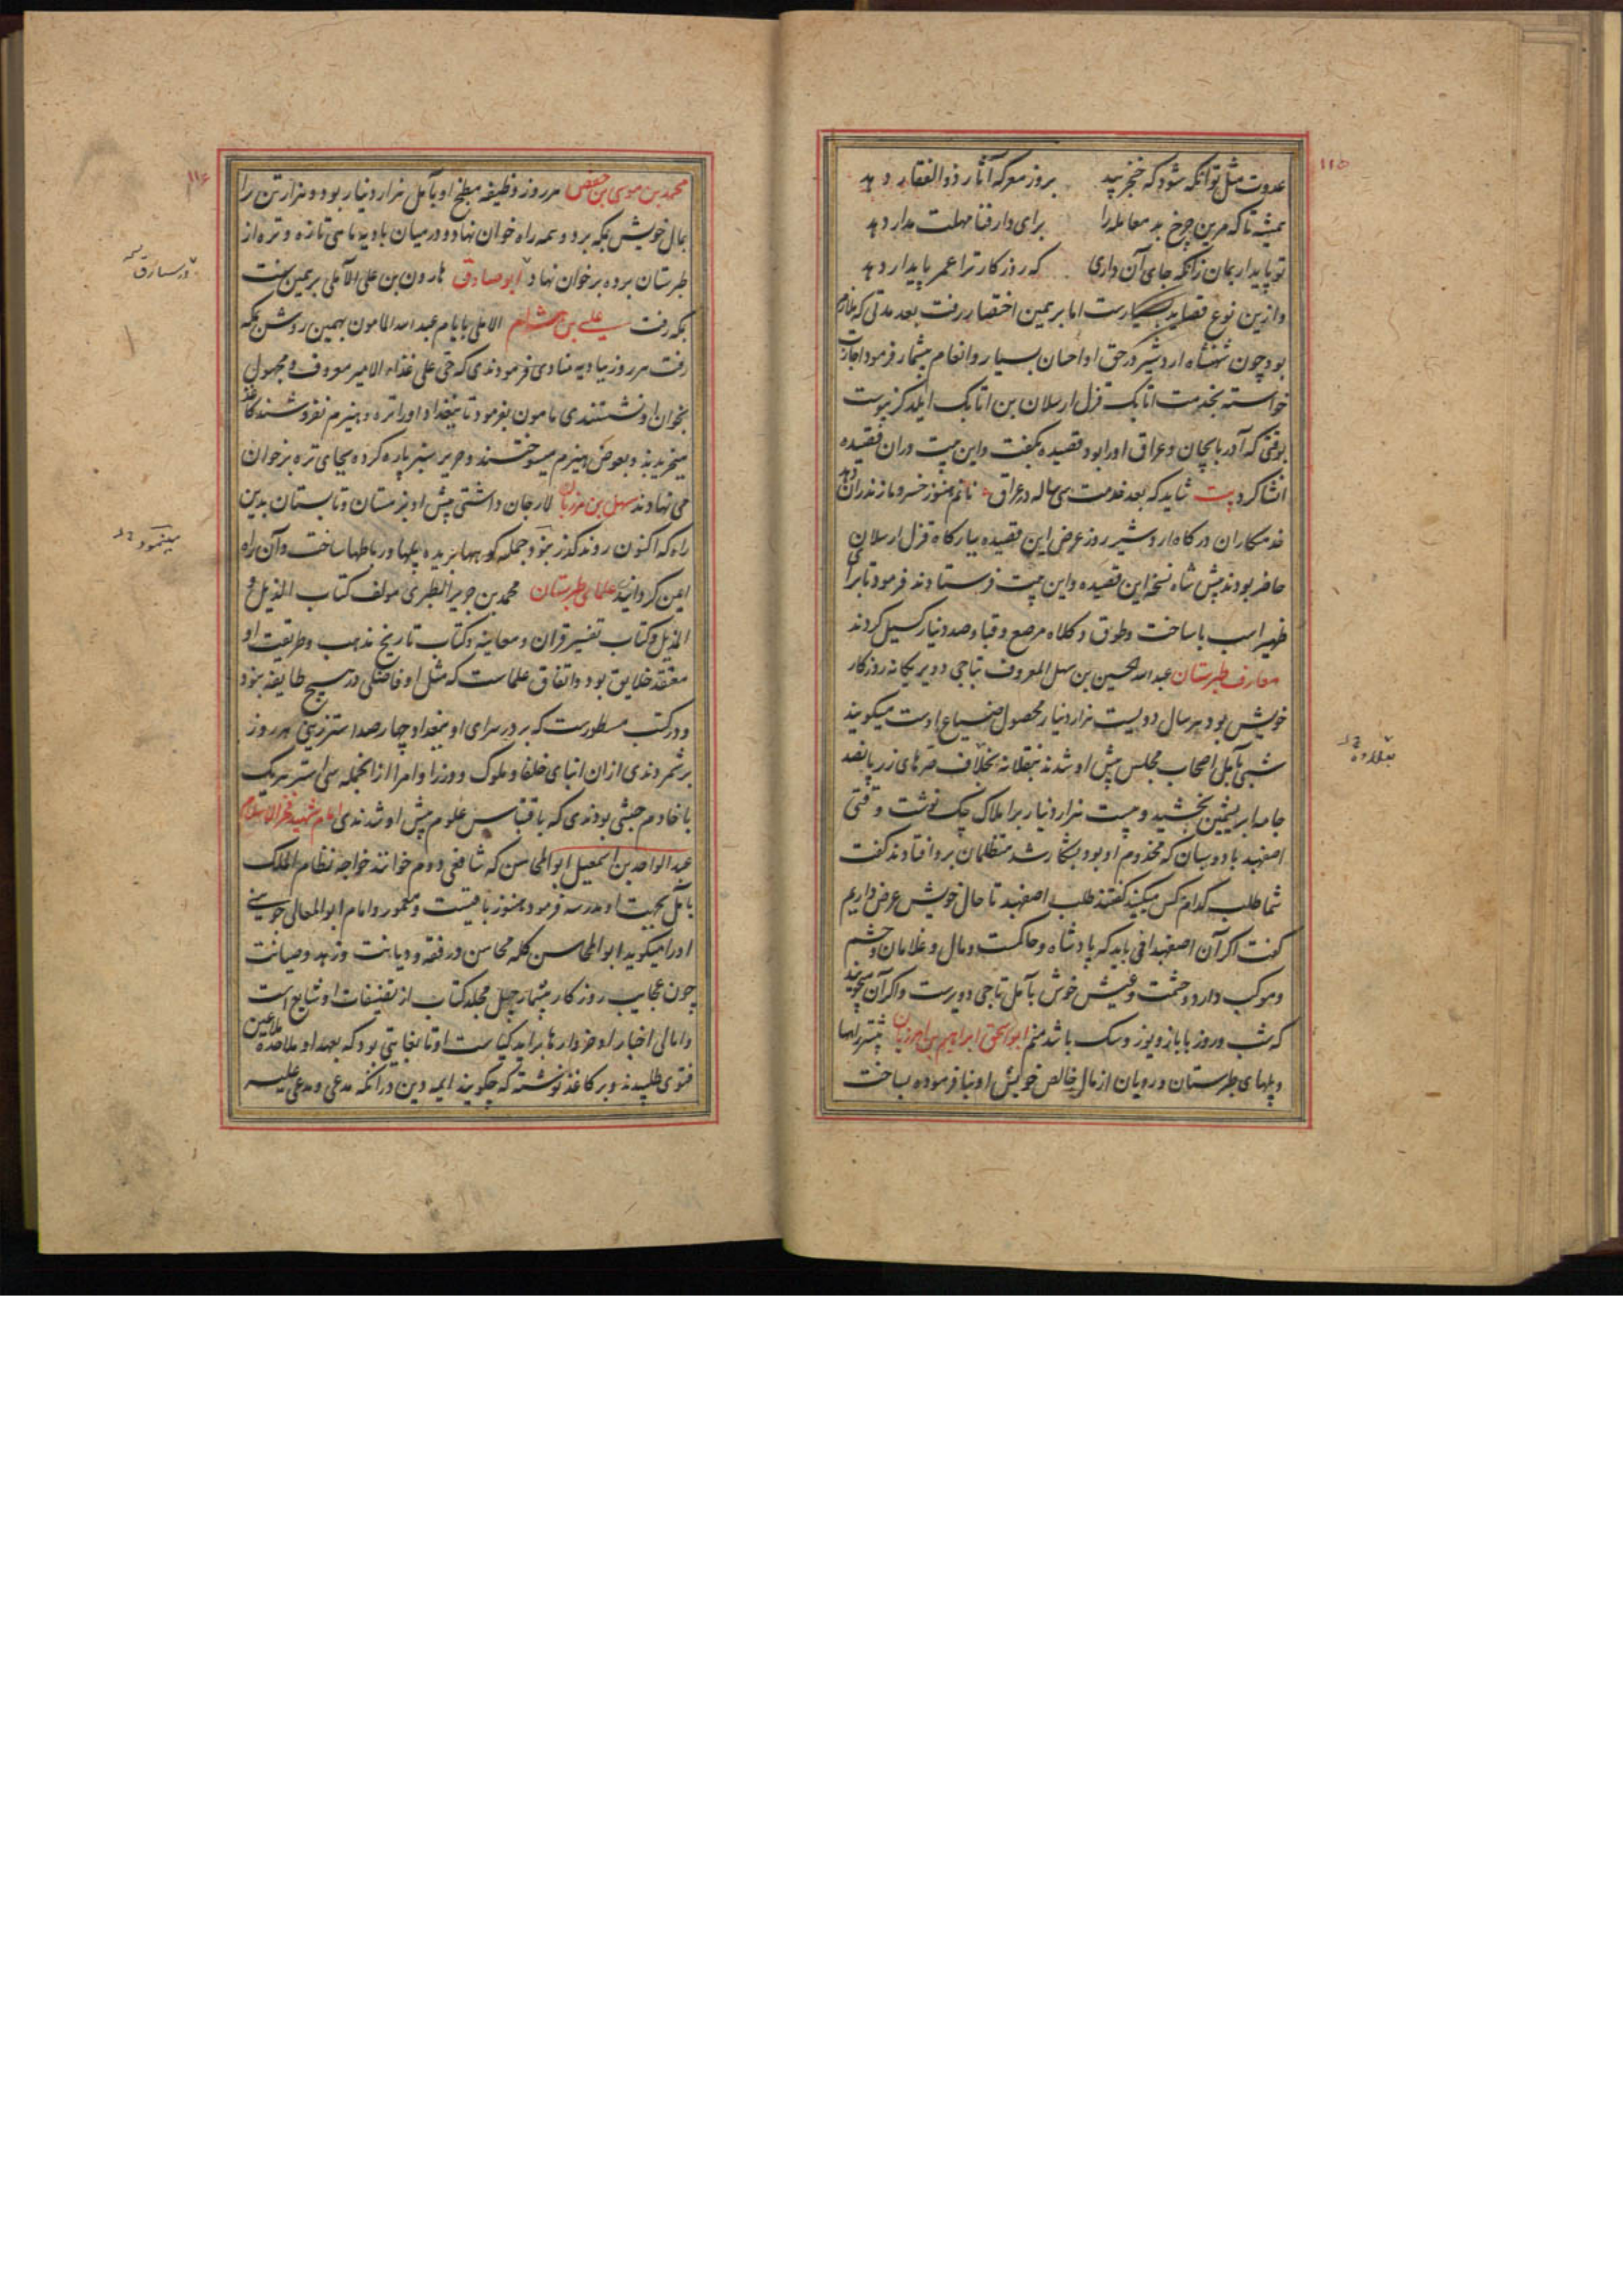 ۱۱۵
عدوت مثل توانکه شود که خنجر بید بروز معرکه آثار ذوالفقار دهد
همیشه تا که مرین چرخ بد معامله را برای دار فنا مهلت مدار دهد
تو پایدار بمان زانکه جای آن داری که روزکار ترا عمر پایدار دهد
وازین نوع قصاید بسیارست اما برهمین اختصار رفت بعد مدتی که ملازم
بود چون شهنشاه اردشیر در حق او احسان بسیار و انعام بیشمار فرمود اجازت
خواسته بخدمت اتابک قزل ارسلان بن اتابک ایلدکز پیوست
بوقتی که آذربایجان و عراق او را بود قصیده بگفت و این بیت دران قصیده
انشا کرد بیت شاید که بعد خدمت سی ساله در عراق نانم هنوز خسرو مازندران دهد
خدمتکاران درکاه اردشیر روز عرض این قصیده ببارکاه قزل ارسلان
حاضر بودند پیش شاه نسخه این قصیده و این بیت فرستادند فرمود تا برای
ظهیر اسب با ساخت و طوق و کلاه مرصع و قبا و صد دینار کسیل کردند
معارف طبرستان عبد الله الحسین بن سهل المعروف بتاجی دویر یکانه روزکار
خویش بود هر سال دویست هزار دینار محصول ضیاع اوست میکویند
شبی بآمل اصحاب مجلس پیش او شدند بنقلانه بخلاف صرهای زر پانصد
جامه ابریشمین بخشید و بیست هزار دینار برا املاک چک نوشت وقتی
اصفهبد بادوسبان که مخدوم او بود بشکار شد متظلمان برو افتادند کفت
شما طلب کدام کس میکنید کفتند طلب اصفهبد تا حال خویش عرض داریم
کفت اکر آن اصفهبد افی باید که پادشاه و حاکمست و مال و غلامان و حشم
و موکب دارد و حشمت و عیش خوش بآمل تاجی دویرست و اکر آن میجویند
که شب و روز با باز و یوز و سک باشد منم ابو اسحق ابراهیم بن المرزبان بیشتر راهها
و پلهای طبرستان و رویان از مال خالص خویش او بنیاد فرموده بساخت
۱۱۶
محمد بن موسی بن حفص هر روز وظیفه مطبخ او بآمل هزار دینار بود و هزار تن را
بمال خویش بمکه برد و همه راه خوان نهاد و در میان بادیه ماهی تازه و تره از
طبرستان برده بر خوان نهاد ابو صادق هارون بن علی الآملی برهمین سنت
بمکه رفت علی بن هشام الاملی بایام عبد الله المامون بهمین روش بمکه
رفت هر روز ببادیه منادی فرمودندی که حی علی غذاء الامیر معروف و مجهول
بخوان او نشستندی مامون بفرمود تا ببغداد او را تره و هیزم نفروشند کاغذ
میخریدند و بعوض هیزم میسوختند و حریر سبز پاره کرده بجای تره بر خوان
می نهادند سهل بن مرزبان لارجان داشتی پیش او بزمستان و تابستان بدین
راه که اکنون روند کذر نبود جمله کوهها بریده پلها و رباطها ساخت و آن راه
ایمن کردانید علمای طبرستان محمد بن جریر الطبری مولف کتاب المذیل و
الذیل و کتاب تفسیر قران و معانیه و کتاب تاریخ مذهب و طریقت او
معتقد خلایق بود و اتفاق علماست که مثل او فاضلی در هیچ طایفه نبود
و در کتب مسطورست که بر در سرای او ببغداد چهار صد استر زینی هر روز
برشمردندی ازان ابنای خلفا و ملوک و وزرا و امرا ازانجمله سی استر هر یک
با خادم حبشی بودندی که باقتباس علوم پیش او شدندی امام شهید فخر الاسلام
عبد الواحد بن اسمعیل ابو المحاسن که شافعی دوم خوانند خواجه نظام الملک
بآمل بجهت او مدرسه فرمود هنوز باقیست و معمور و امام ابو المعالی جوینی
او را میکوید ابو المحاسن کله محاسن و در فقه و دیانت و زهد و صیانت
چون عجایب روزکار بیشمار چهل مجلد کتاب از تصنیفات او شایع است
و امالی اخبار او خروارها براید کیاست او تا بغایتی بود که بعهد او ملاحده ملاعین
فتوی طلبیدند و بر کاغذ نوشته که چکویند ایمه دین درانکه مدعی و مدعی علیه